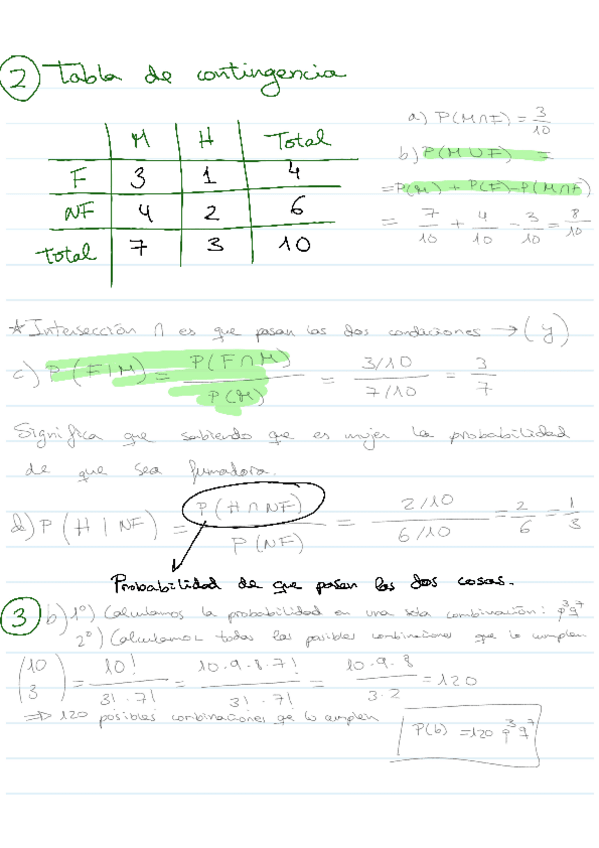 2 Tabla de contingencia
M H Total
F 3 1 4
NF 4 2 6
Total 7 3 10
a) P(M∩F) = 3/10
b) P(M∪F) =
= P(M) + P(F) - P(M∩F)
= 7/10 + 4/10 - 3/10 = 8/10
* Intersección ∩ es que pasan las dos condiciones → (y)
c) P(F|M) = P(F∩M)/P(M) = 3/10 / 7/10 = 3/7
Significa que sabiendo que es mujer la probabilidad
de que sea fumadora.
d) P(H|NF) = P(H∩NF)/P(NF) = 2/10 / 6/10 = 2/6 = 1/3
Probabilidad de que pasen las dos cosas.
3 b) 1º) Calculamos la probabilidad en una sola combinación: p³q⁷
2º) Calculamos todas las posibles combinaciones que lo cumplen
(10 3) = 10!/3!·7! = 10·9·8·7!/3!·7! = 10·9·8/3·2 = 120
⇒ 120 posibles combinaciones qe lo cumplen
P(b) = 120 p³q⁷